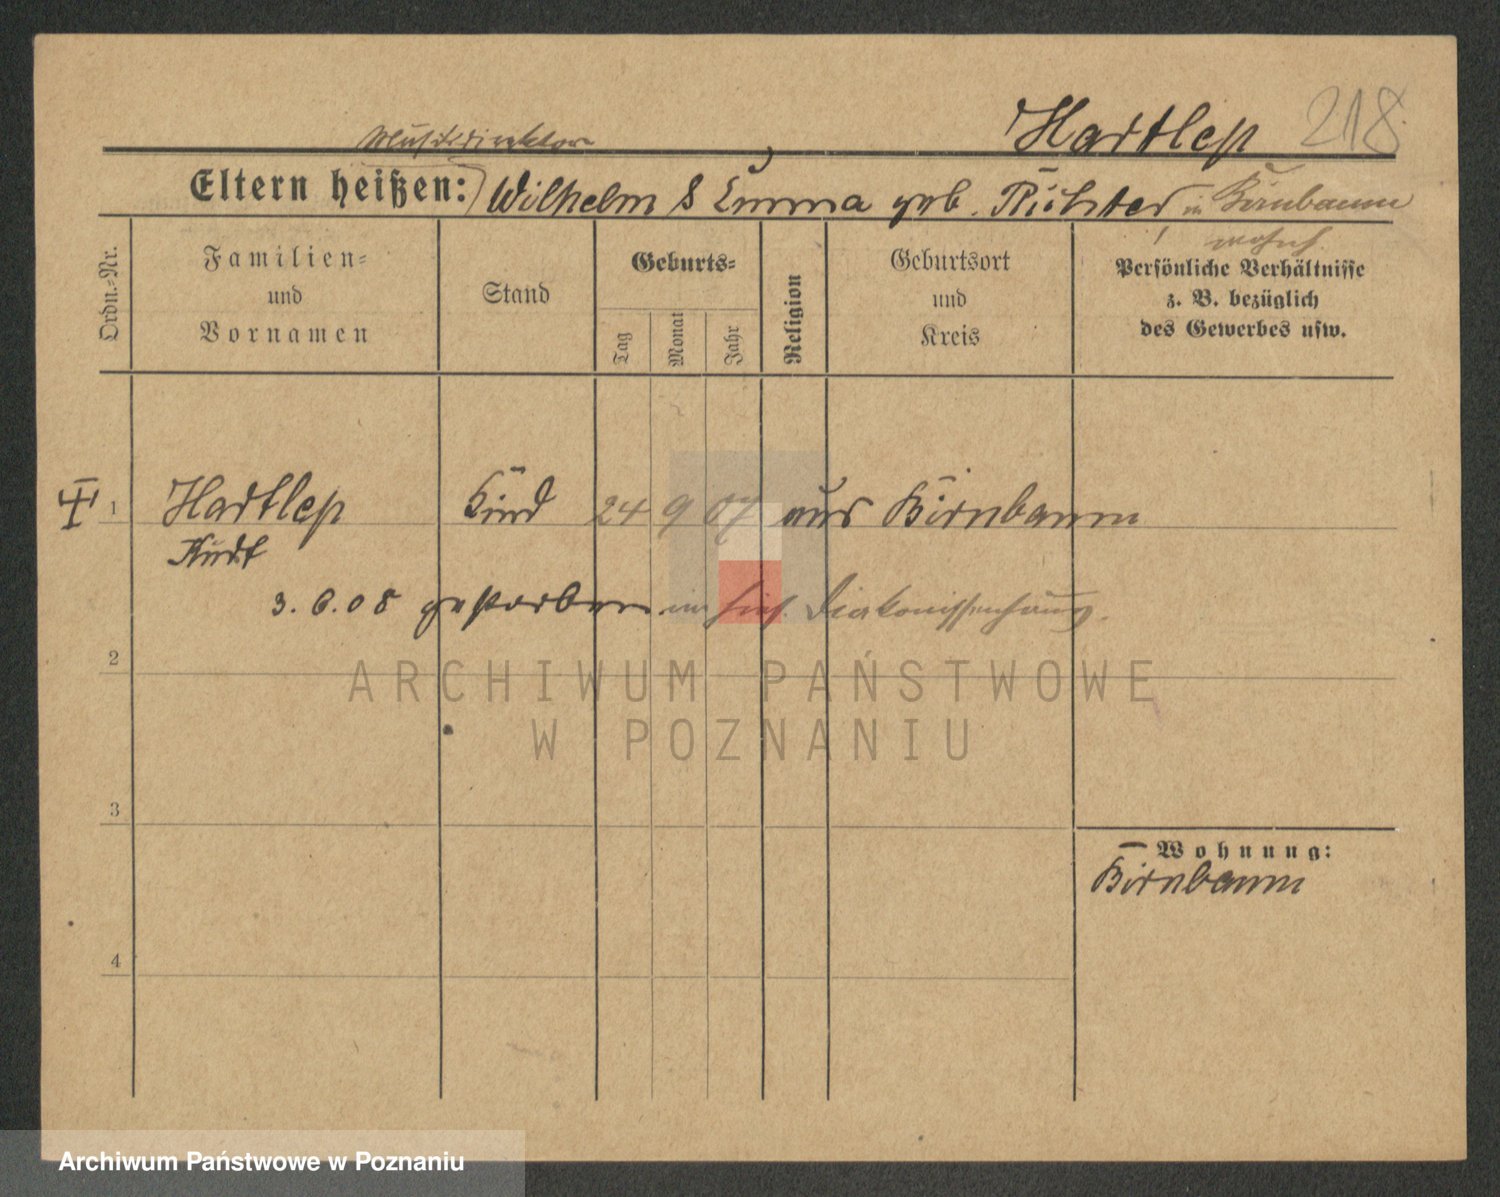 Hartlep 218
Musikdirektor
Eltern heißen: Wilhelm & Emma geb. Richter in Birnbaum
wohnh.
Ordn.-Nr.
Familien-
und
Vornamen
Stand
Geburts-
Tag
Monat
Jahr
Religion
Geburtsort
und
Kreis
Persönliche Verhältnisse
z. B. bezüglich
des Gewerbes usw.
1 Hartlep Kind 24 9 07 aus Birnbaum
Kurt
3. 6. 08 gestorben im hies. Diakonissenhaus.
2
ARCHIWUM PAŃSTWOWE
W POZNANIU
3
Wohnung:
Birnbaum
4
Archiwum Państwowe w Poznaniu